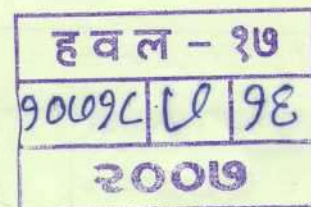 हवल – १७
१०७१८ १६
२००७